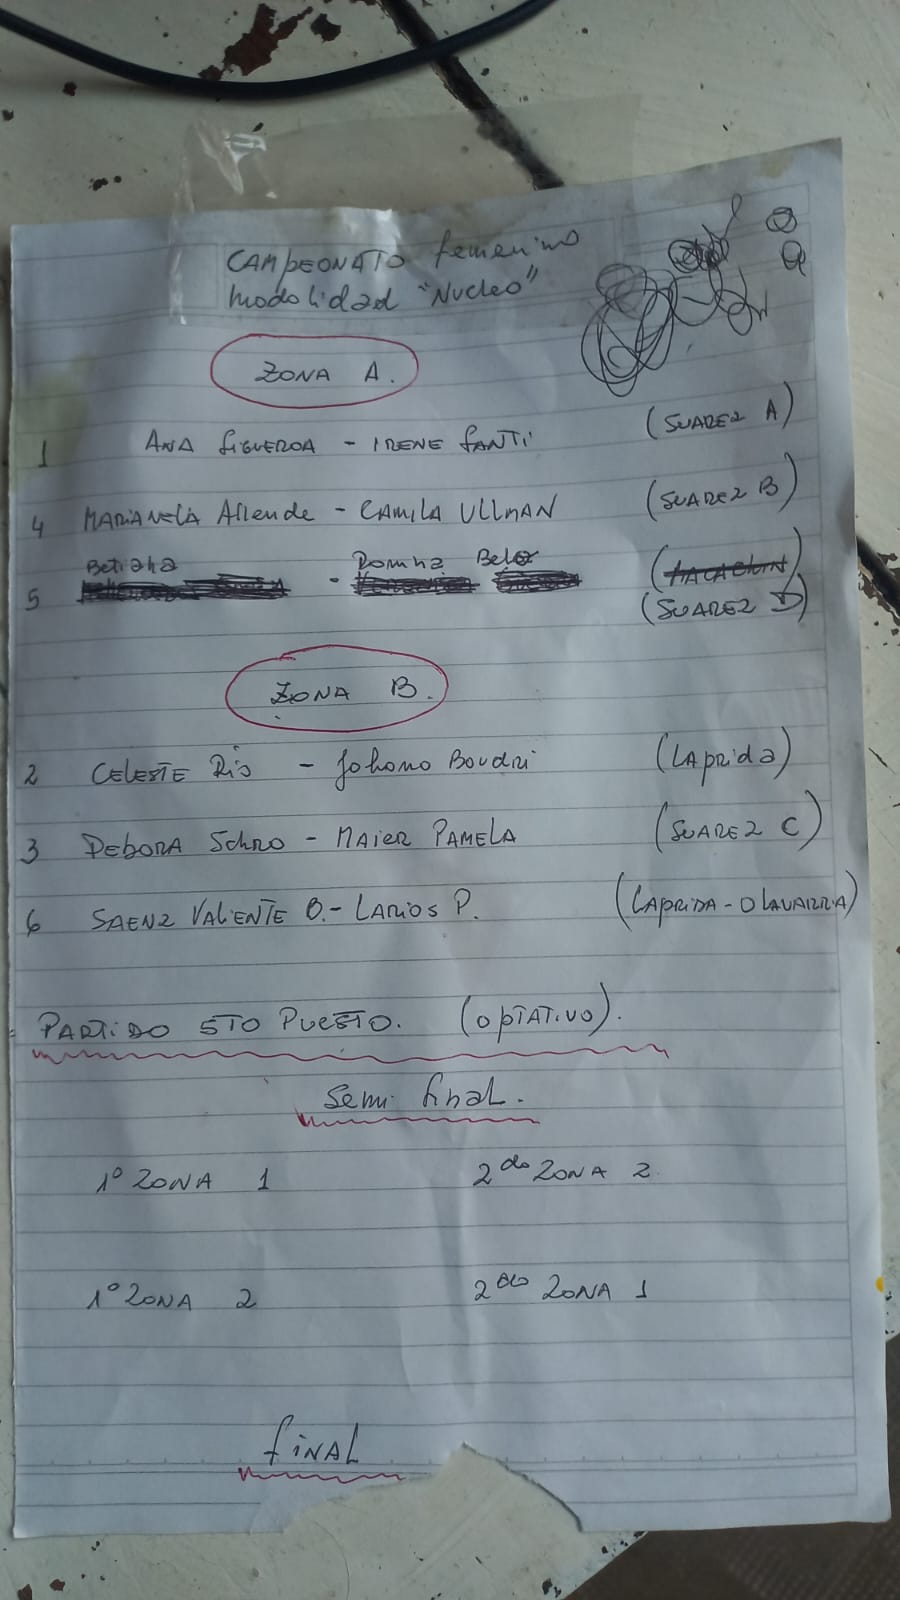 CAMPEONATO femenino
modalidad "NUCLEO"
ZONA A.
1 ANA FIGUEROA - IRENE FANTI (SUAREZ A)
4 MARIANELA Allende - CAMILA ULLMAN (SUAREZ B)
Betiana - Romina Belez
5 (SUAREZ D)
ZONA B.
2 CELESTE Ris - Johana Boudri (LAprida)
3 DEBORA Schro - MAIER PAMELA (SUAREZ C)
6 SAENZ VALIENTE B. - LARIOS P. (LAPRIDA - OLAVARRIA)
PARTIDO 5TO PUESTO. (OPTATIVO).
Semi final.
1º ZONA 1 2do ZONA 2
1º ZONA 2 2do ZONA 1
fINAL